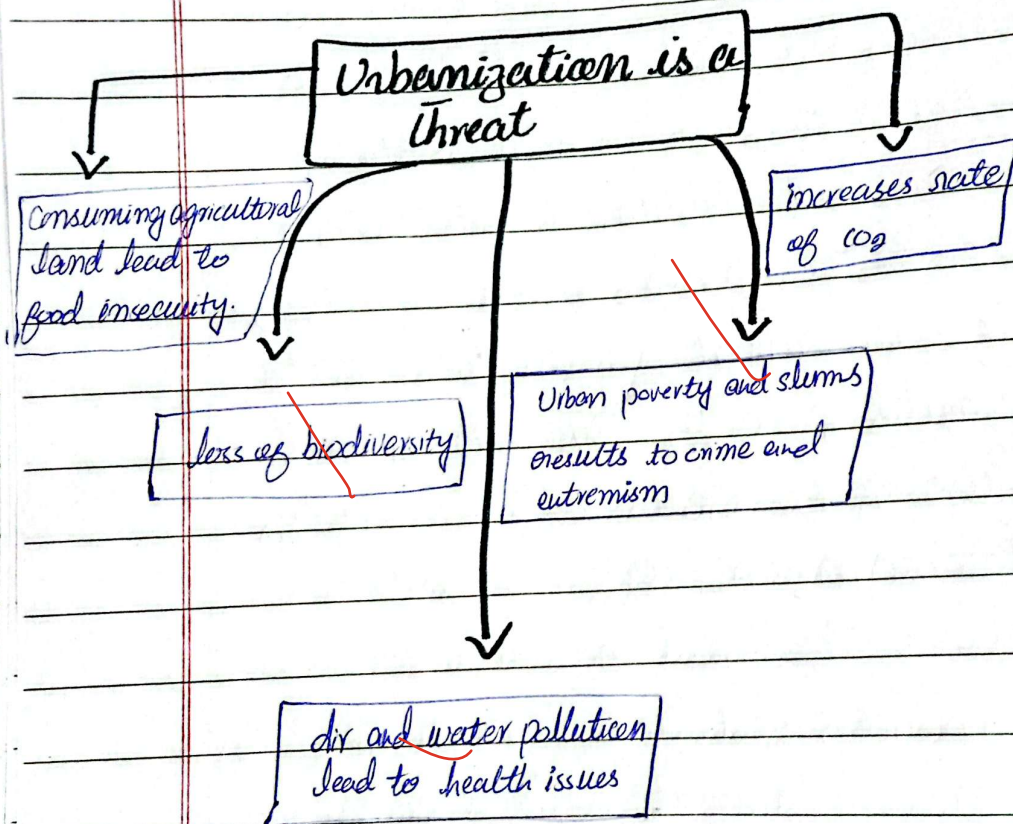 Urbanization is a
threat
Consuming agricultural
land lead to
food insecurity.
increases rate
of CO2
loss of biodiversity
Urban poverty and slums
results to crime and
extremism
Air and water pollution
lead to health issues